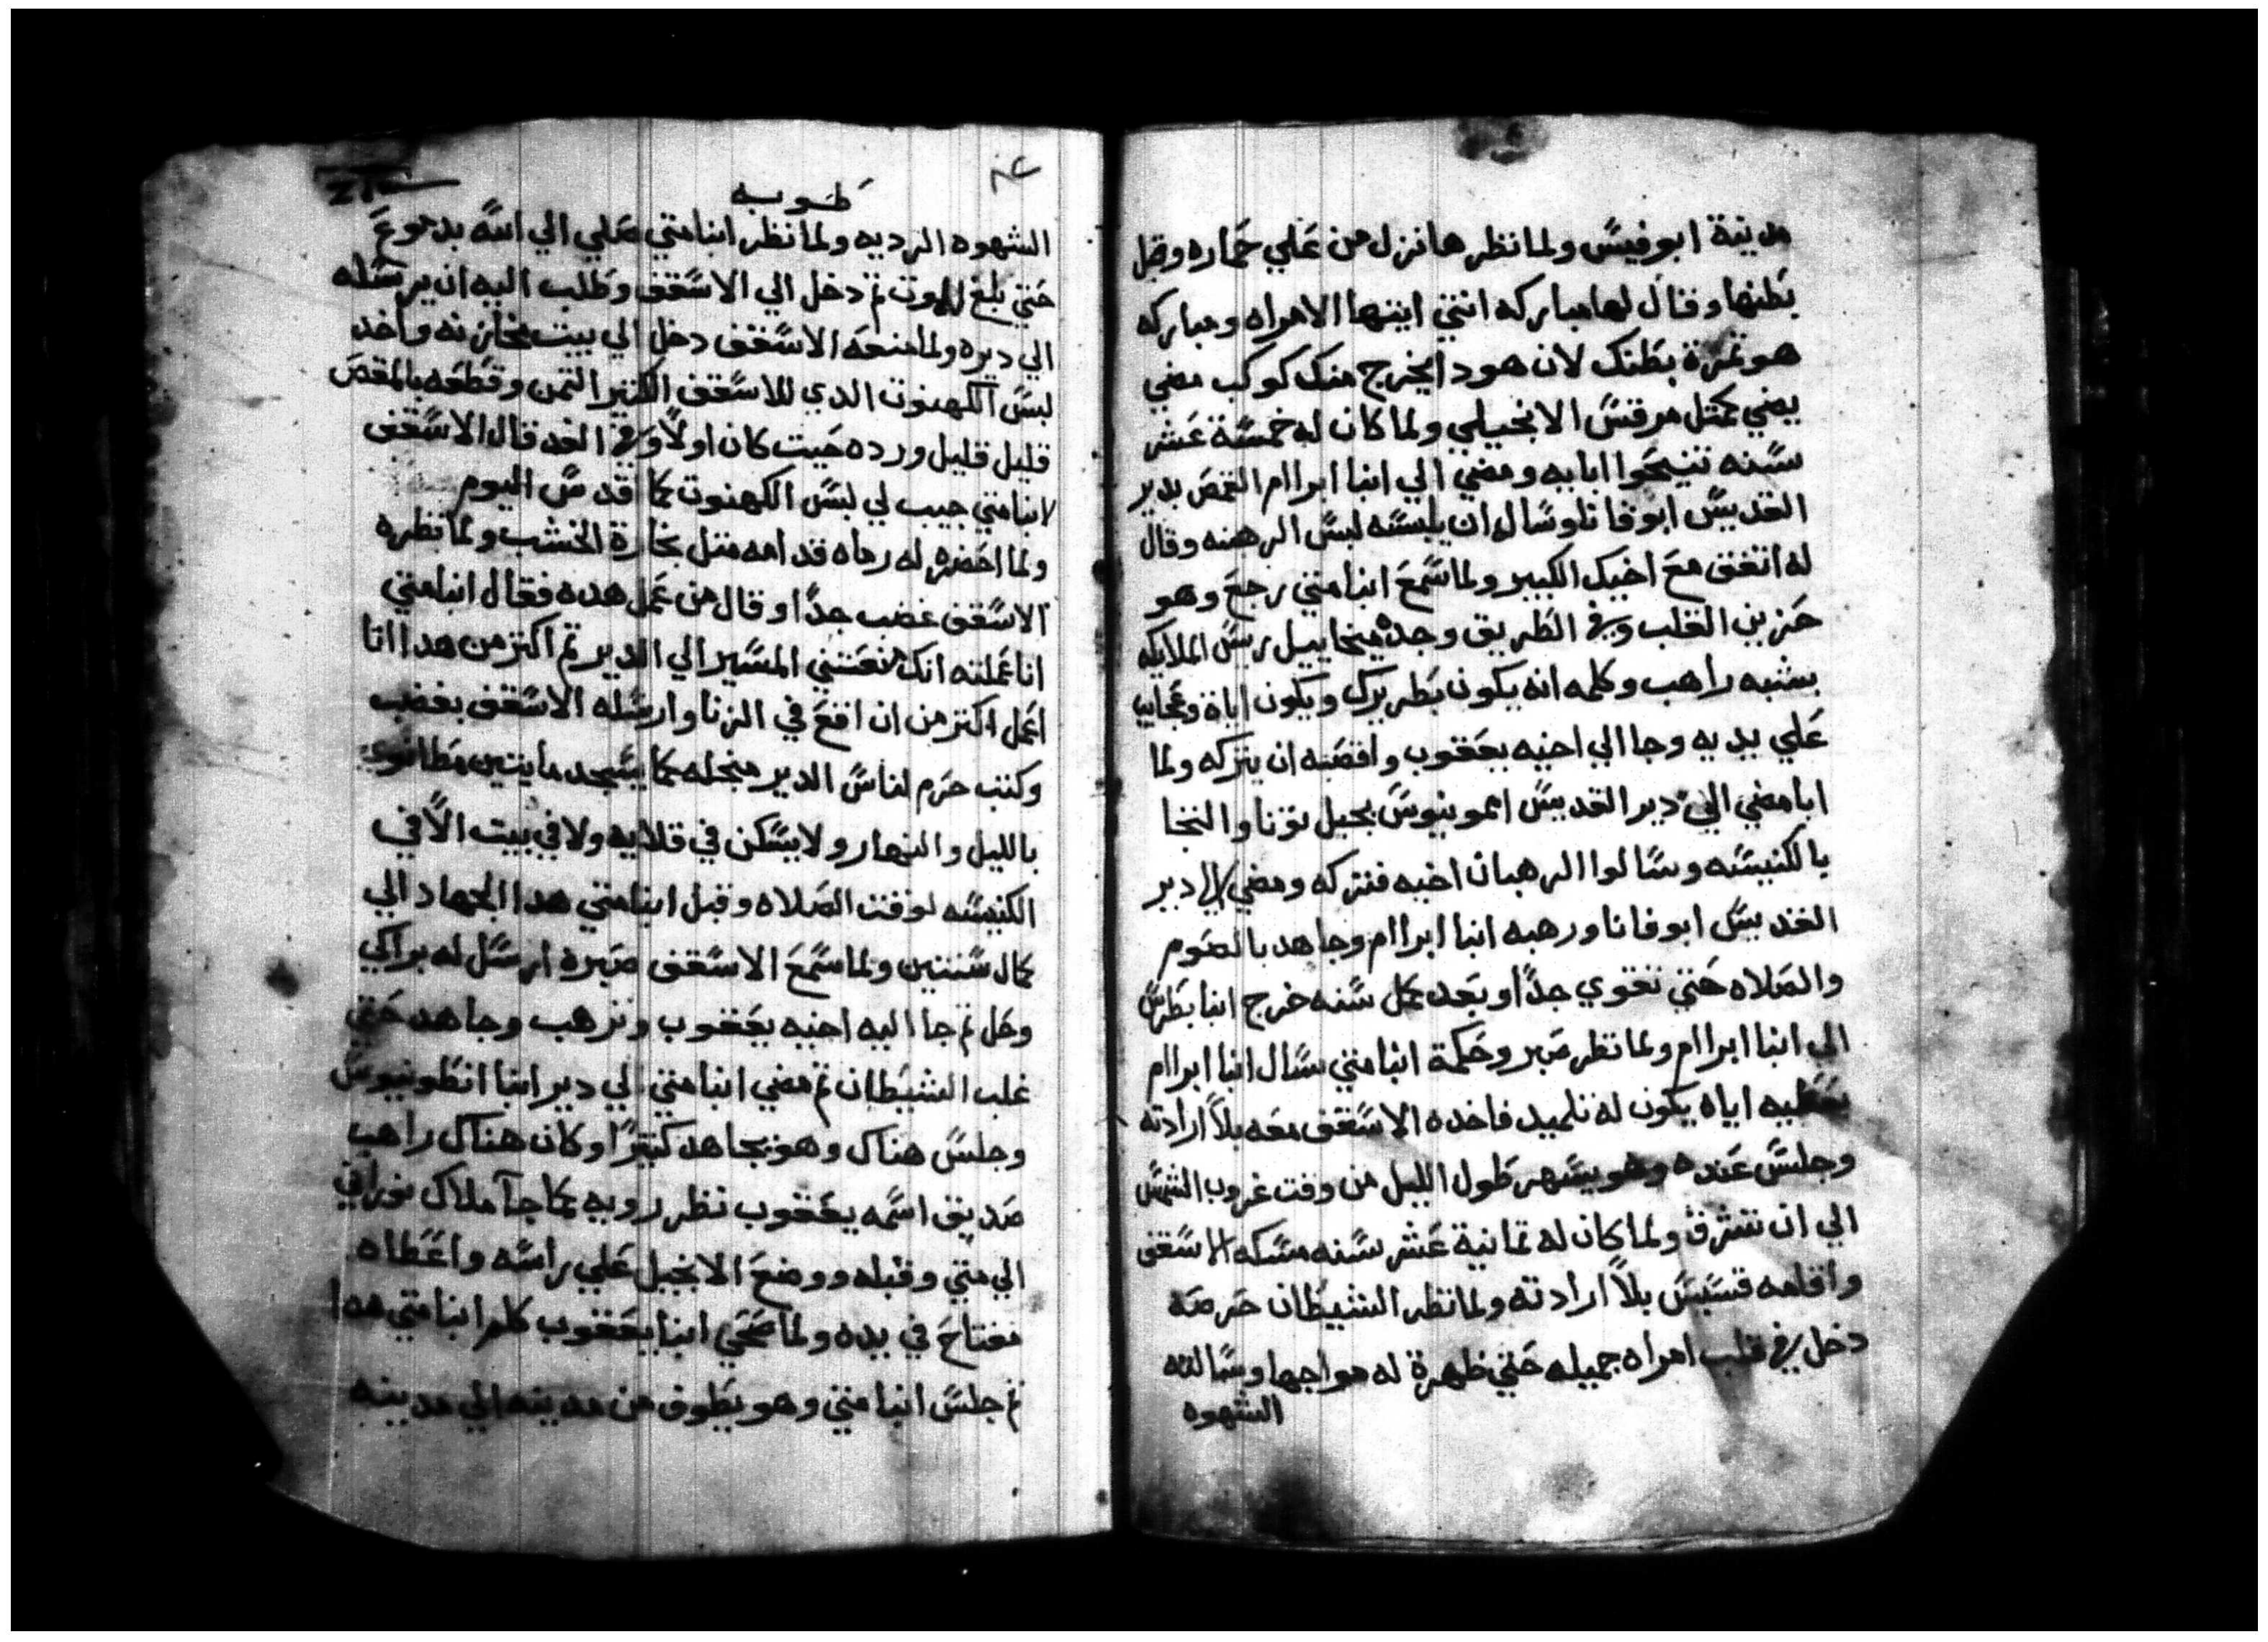 مدينة ابوفيس ولما نظرها نزل من علي حماره وقبل
بطنها وقال لها مباركه انتي ايتها الامراه ومباركه
هو تمرة بطنك لان هودا يخرج منك كوكب مضي
يضي كمتل مرقس الانجيلي ولما كان له خمسة عشر
سنه تنيحوا ابايه ومضي الي انبا ابراام القمص بدير
القديس ابوفانا وسال ان يلبسه لبس الرهبنه وقال
له اتفق مع اخيك الكبير ولما سمع انبا متي رجع وهو
حزين القلب وفي الطريق وجده ميخاييل ريس الملايكه
بشبه راهب وكلمه انه يكون بطريرك ويكون اياة وعجايب
علي يديه وجا الي اخيه يعقوب وافضه ان يتركه ولما
ابا مضي الي دير القديس امونيوس بجبل تونا والتجا
بالكنيسه وسالوا الرهبان اخيه فتركه ومضي الي دير
القديس ابوفانا ورهبه انبا ابراام وجاهد بالصوم
والصلاه حتي تقوي جدا وبعد كل سنه خرج انبا بطرس
الي انبا ابراام ولما نظر صبر وحكمة انبا متي سال انبا ابراام
يعطيه اياه يكون له تلميد فاخده الاسقف معه بلا ارادته
وجلس عنده وهو يسهر طول الليل من وقت غروب الشمس
الي ان تشرق ولما كان له تمانية عشر سنه مسكه الاسقف
واقامه قسيس بلا ارادته ولما نظر الشيطان حرصه
دخل في قلب امراه جميله حتي ظهرة له مواجها وسالته
الشهوه
طوبه
الشهوه الرديه ولما نظر انبا متي صلي الي الله بدموع
حتي بلغ الموت تم دخل الي الاسقف وطلب اليه ان يرسله
الي ديره ولما منعه الاسقف دخل الي بيت مخازنه واخد
لبس الكهنوت الدي للاسقف الكتير التمن وقطعه بالمقص
قليل قليل ورده حيت كان اولا وفي الغد قال الاسقف
لانبا متي جيب لي لبس الكهنوت كما اقدس اليوم
ولما احضره له رماه قدامه متل نجارة الخشب ولما نظره
الاسقف غضب جدا وقال من عمل هده فقال انبا متي
انا عملته انك منعتني المسير الي الدير تم اكتر من هدا انا
اعمل اكتر من ان اقع في الزنا وارسله الاسقف بغضب
وكتب حرم لناس الدير من جله كما يسجد مايتين مطانوه
بالليل والنهار ولا يسكن في قلايه ولا في بيت الا في
الكنيسه لوقت الصلاه وقبل انبا متي هدا الجهاد الي
كمال سنتين ولما سمع الاسقف صبره ارسل له براكي
وحل تم جا اليه اخيه يعقوب وترهب وجاهد حتي
غلب الشيطان تم مضي انبا متي الي دير انبا انطونيوس
وجلس هناك وهو يجاهد كتيرا وكان هناك راهب
صديق اسمه يعقوب نظر رويه كما جا ملاك نوراني
الي متي وقبله ووضع الانجيل علي راسه واعطاه
مفتاح في يده ولما صحي انبا يعقوب كلم انبا متي هدا
تم جلس انبا متي وهو يطوف من مدينه الي مدينه